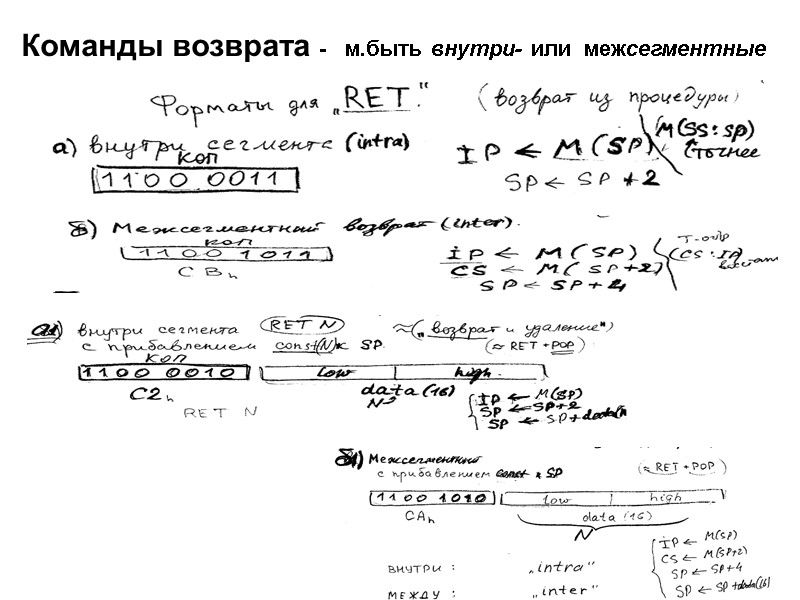 Команды возврата - м.быть внутри- или межсегментные
Форматы для „RET." (возврат из процедуры)
а) внутри сегмента (intra)
КОП
1100 0011
IP ← M(SP) M(SS:SP)
(точнее
SP ← SP+2
б) Межсегментный возврат (inter).
КОП
1100 1011
CBh
IP ← M(SP)
CS ← M(SP+2)
SP ← SP+4
(CS:IP)
а1) внутри сегмента RET N ≈(„возврат и удаление")
с прибавлением const(N) к SP. (≈ RET+POP)
КОП
1100 0010 low high
C2h data(16)
RET N N
IP ← M(SP)
SP ← SP+2
SP ← SP+data(
б1) Межсегментный
с прибавлением const к SP (≈ RET+POP)
1100 1010 low high
CAh data(16)
N
IP ← M(SP)
CS ← M(SP+2)
SP ← SP+4
SP ← SP+data(16)
ВНУТРИ: „intra"
МЕЖДУ: „inter"